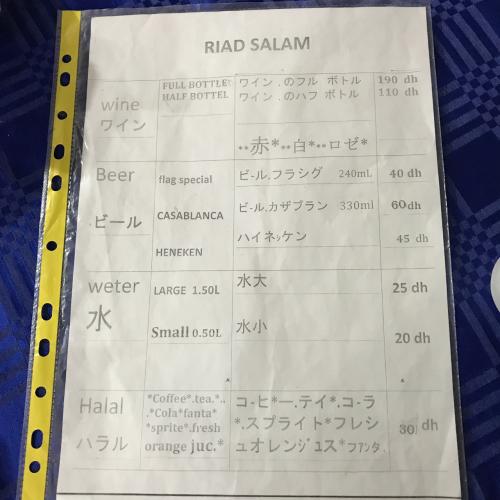 RIAD SALAM
wine
ワイン
FULL BOTTLE
HALF BOTTEL
ワイン . のフル ボトル
ワイン . のハフ ボトル
190 dh
110 dh
••赤*••白*••ロゼ*
Beer
ビール
flag special
ビ-ル.フラシグ 240mL
40 dh
CASABLANCA
ビ-ル.カザブラン 330ml
60dh
HENEKEN
ハイネッケン
45 dh
weter
水
LARGE 1.50L
水大
25 dh
Small 0.50L
水小
20 dh
Halal
ハラル
*Coffee*.tea.*..
.*Cola*fanta*
*sprite*.fresh
orange juc.*
コ-ヒ*ー.テイ*.コ-ラ
*.スプライト*フレシ
ュオレンジュス*ファンタ.
30 dh